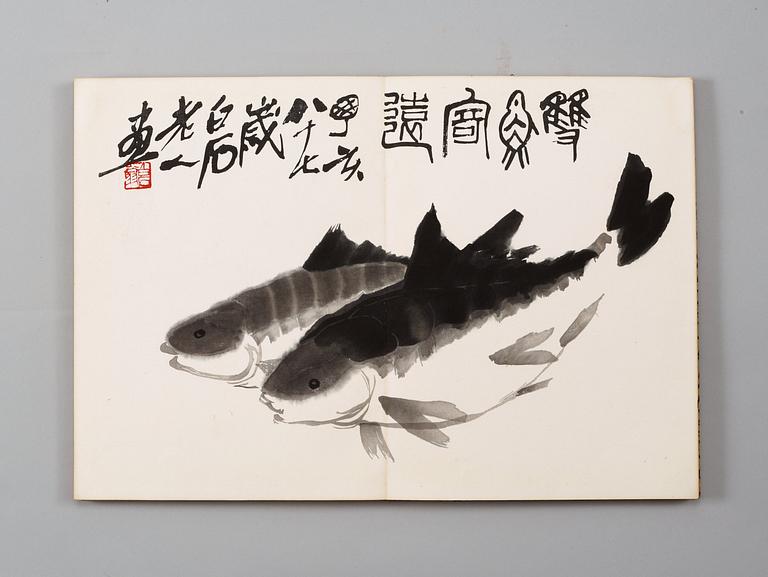 雙魚遠
亥
八十七
歲
白石
老人
畫